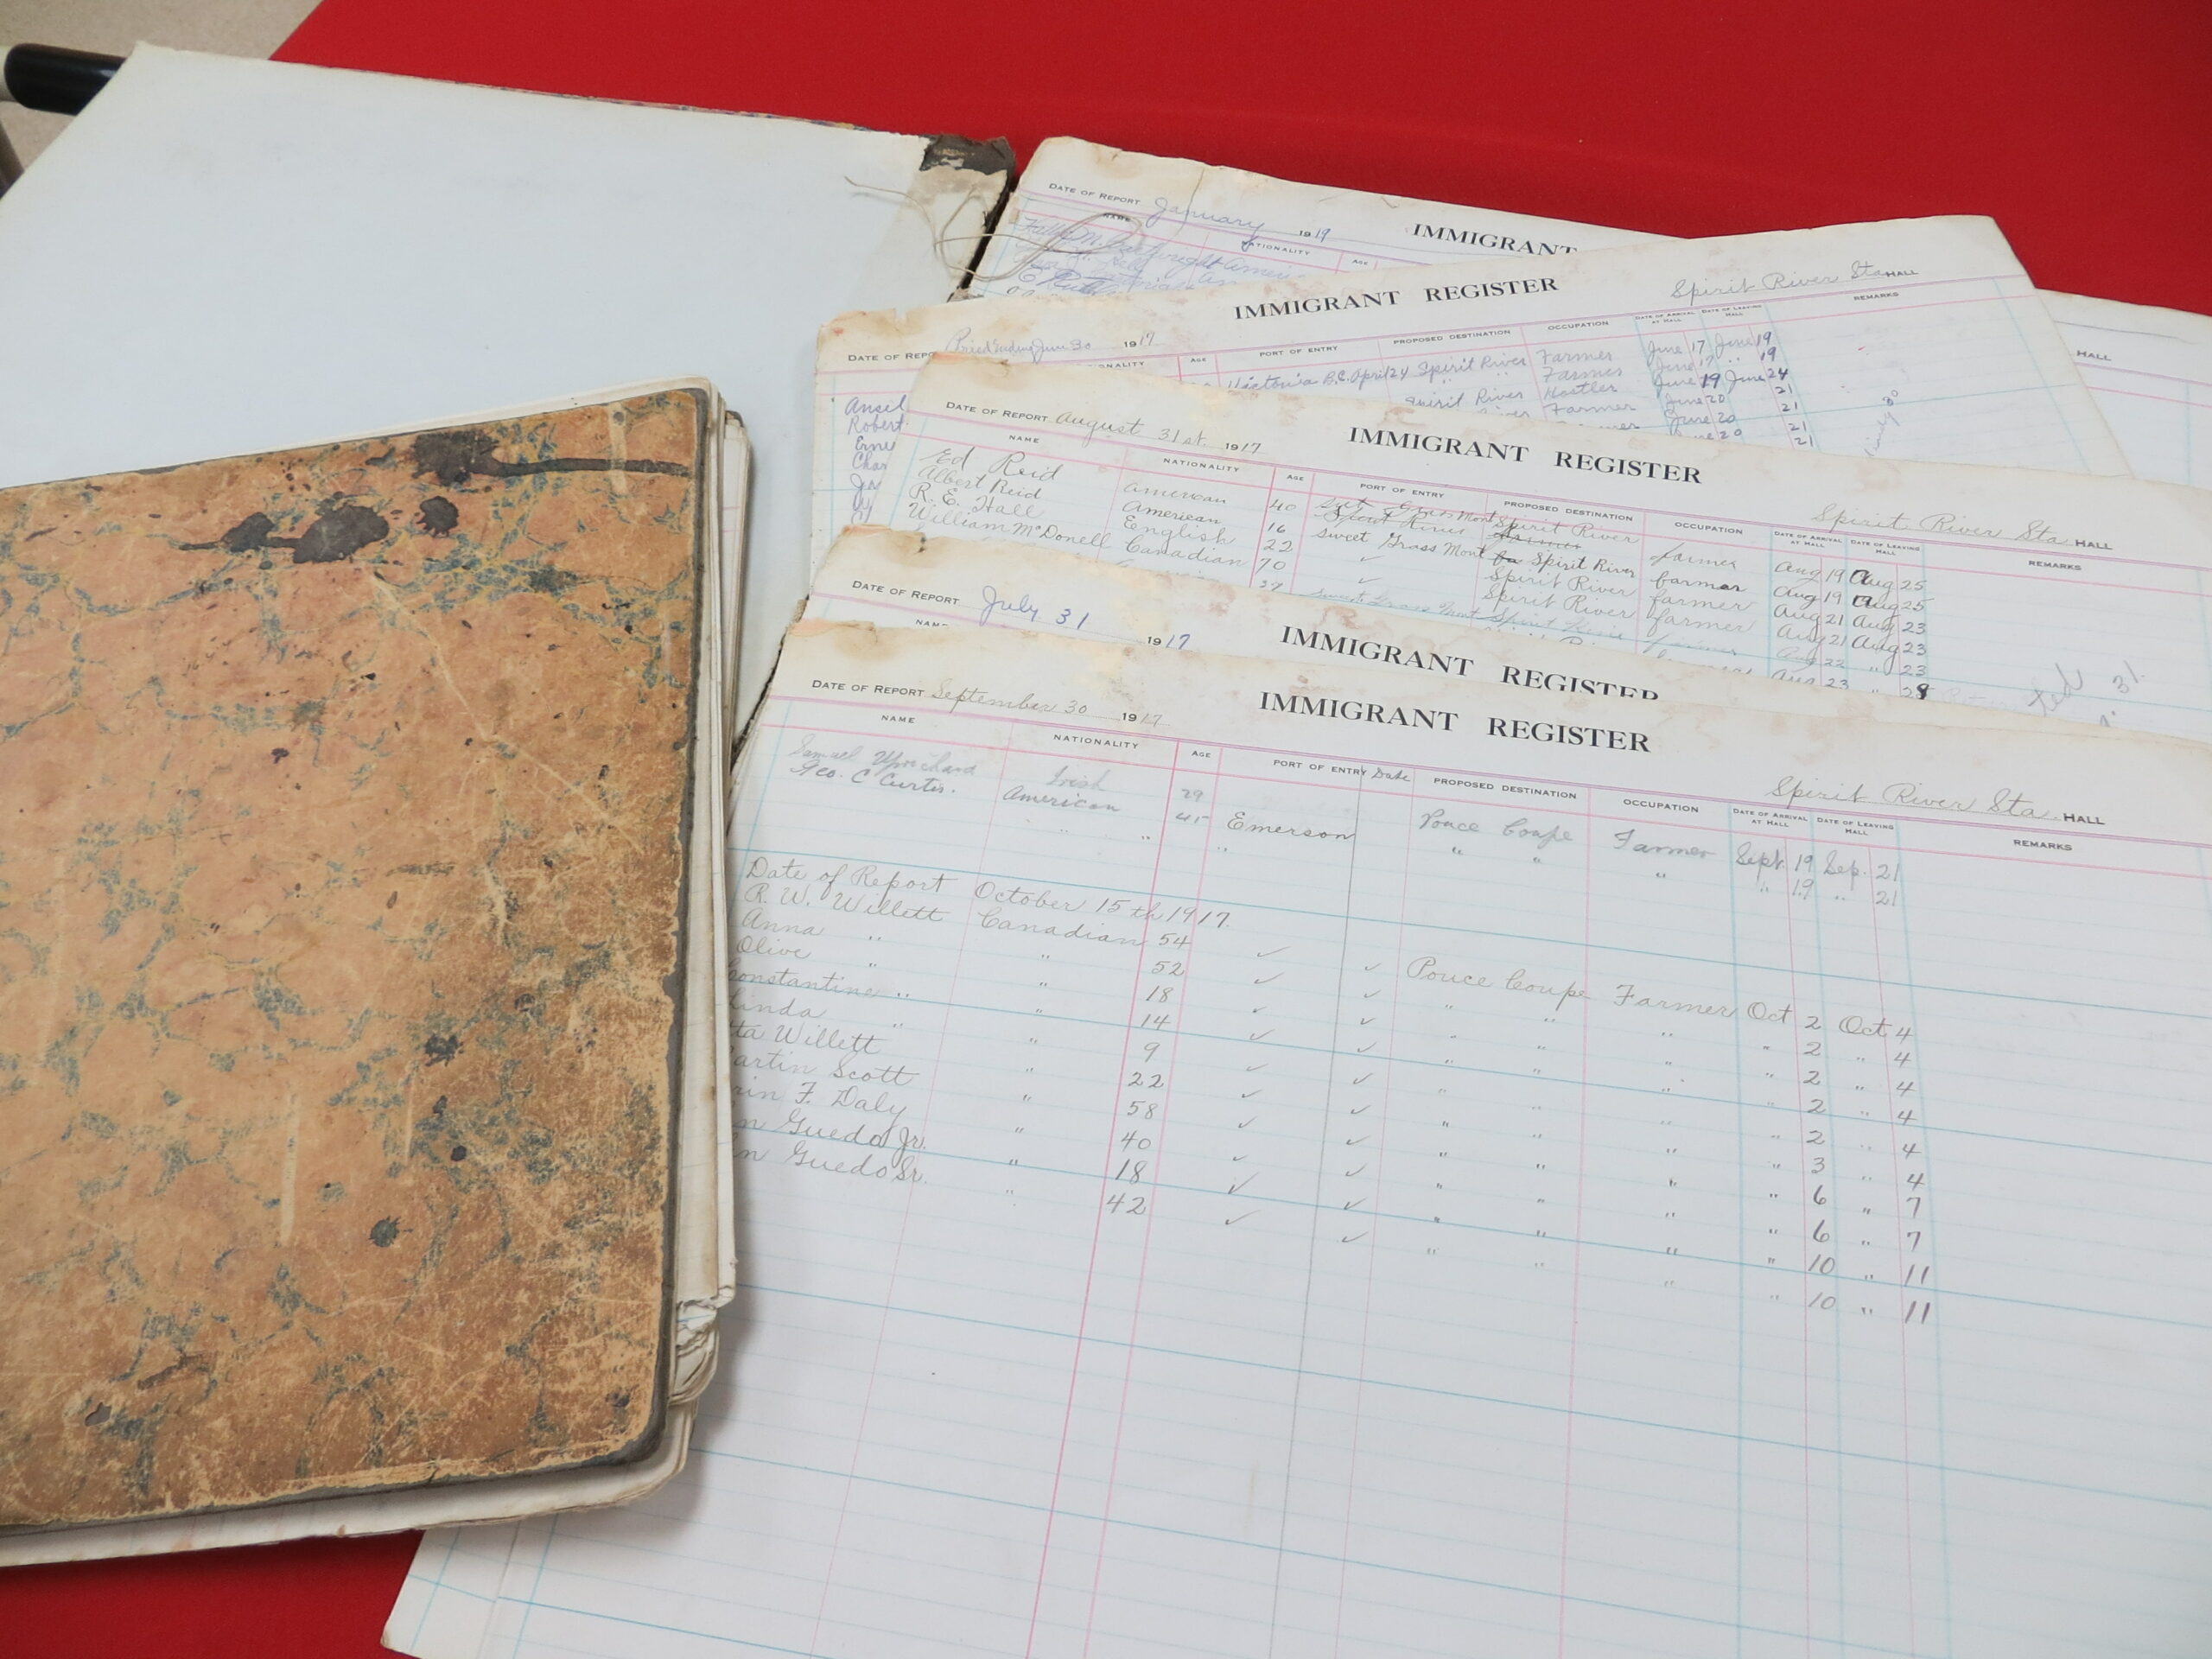 DATE OF REPORT January 1919 IMMIGRANT
NAME NATIONALITY AGE
HALL
IMMIGRANT REGISTER Spirit River Sta HALL
Period Ending June 30 1917
AGE PORT OF ENTRY PROPOSED DESTINATION OCCUPATION DATE OF ARRIVAL AT HALL DATE OF LEAVING HALL REMARKS
Victoria B.C. April 24 Spirit River Farmer June 17 June 19
Farmer June 17 " 19
Spirit River Hostler June 19 June 24
River Farmer June 20 21
June 20 21
June 20 21
Ansel
Robert
DATE OF REPORT August 31st 1917 IMMIGRANT REGISTER Spirit River Sta HALL
NAME NATIONALITY AGE PORT OF ENTRY PROPOSED DESTINATION OCCUPATION DATE OF ARRIVAL AT HALL DATE OF LEAVING HALL REMARKS
Ed Reid American 40 Spirit River farmer Aug 19 Aug 25
Albert Reid American 16 farmer Aug 19 Aug 25
R. E. Hall English 22 Sweet Grass Mont Spirit River farmer Aug 21 Aug 23
William McDonell Canadian 70 ✓ Spirit River farmer Aug 21 Aug 23
37 Sweet Grass Mont Spirit River Aug 22 " 23
Aug 23 "
DATE OF REPORT July 31 1917 IMMIGRANT REGISTER
DATE OF REPORT September 30 1917 IMMIGRANT REGISTER Spirit River Sta. HALL
NAME NATIONALITY AGE PORT OF ENTRY Date PROPOSED DESTINATION OCCUPATION DATE OF ARRIVAL AT HALL DATE OF LEAVING HALL REMARKS
Samuel Irish 29 Emerson Pouce Coupe Farmer Sept. 19 Sep. 21
Geo. C Curtis. American 45 " " " " " 19 " 21
Date of Report October 15th 1917.
R. W. Willett Canadian 54 ✓ ✓ Pouce Coupe Farmer Oct 2 Oct 4
Anna " " 52 ✓ ✓ " " " " 2 " 4
Olive " " 18 ✓ ✓ " " " " 2 " 4
Constantine " " 14 ✓ ✓ " " " " 2 " 4
inda " " 9 ✓ ✓ " " " " 2 " 4
ta Willett " 22 ✓ ✓ " " " " 3 " 4
artin Scott " 58 ✓ ✓ " " " " 6 " 7
rin F. Daly " 40 ✓ ✓ " " " " 6 " 7
n Guedo Jr. " 18 ✓ ✓ " " " " 10 " 11
n Guedo Sr. " 42 ✓ ✓ " " " " 10 " 11